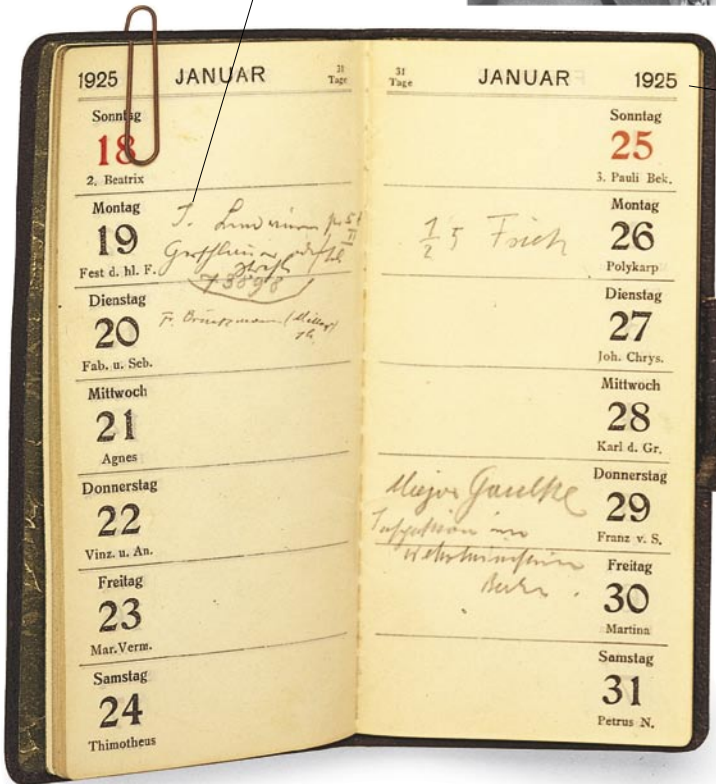 1925 JANUAR 31 Tage
Sonntag
18
2. Beatrix
Montag
19
Fest d. hl. F.
73898
Dienstag
20
Fab. u. Seb.
Fr. Bruckmann
Mittwoch
21
Agnes
Donnerstag
22
Vinz. u. An.
Freitag
23
Mar. Verm.
Samstag
24
Thimotheus
31 Tage JANUAR 1925
Sonntag
25
3. Pauli Bek.
Montag
26
Polykarp
1/2 5
Dienstag
27
Joh. Chrys.
Mittwoch
28
Karl d. Gr.
Donnerstag
29
Franz v. S.
Major
Inspektion im
Freitag
30
Martina
Wehrministerium
Berlin.
Samstag
31
Petrus N.